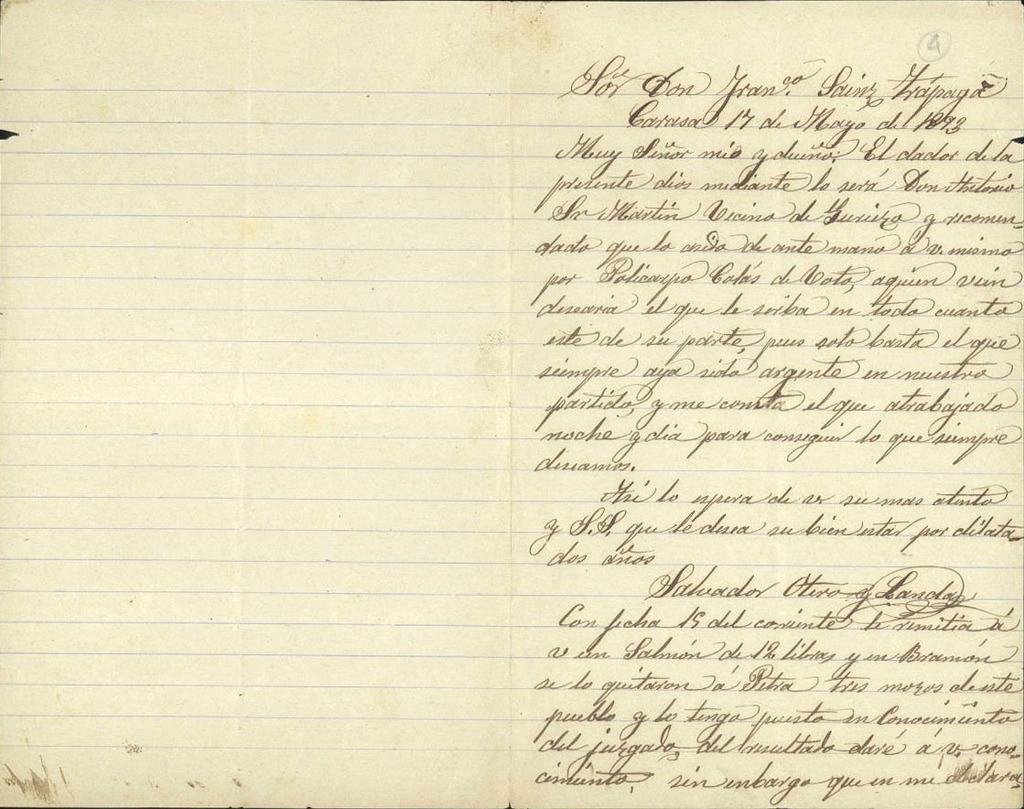 4
Sor Don Franco. Sainz Trápaga
Carasa 17 de Mayo de 1893
Muy Señor mio y dueño: El dador de la
presente dios mediante lo será Don Antonio
Sn Martin Vecino de Guriezo y recomen-
dado que lo asido de ante mano á v. mismo
por Policarpo Colás de Voto, aquien vien
desearia el que le sirba en todo cuanto
este de su parte, pues solo basta el que
siempre aya sido, argente en nuestro
partido, y me consta el que atrabajado
noche y dia para conseguir lo que siempre
deseamos.
Asi lo espera de v su mas atento
y S.S. que le desea su bien estar por dilata-
dos años
Salvador Otero y Landa
Con fecha 15 del corriente le remitia á
v un Salmón de 12 libras y en Bramón
se lo quitaron á Petra tres mozos deeste
pueblo y lo tengo puesto en Conocimiento
del juzgado, del resultado daré á v. cono-
cimiento, sin enbargo que en me declara-